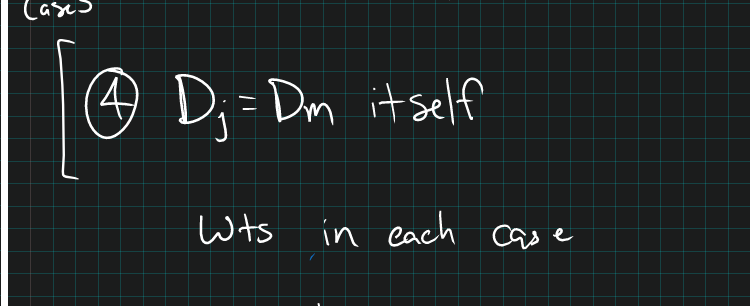 Cases
④ Dj = Dm itself
Wts in each case